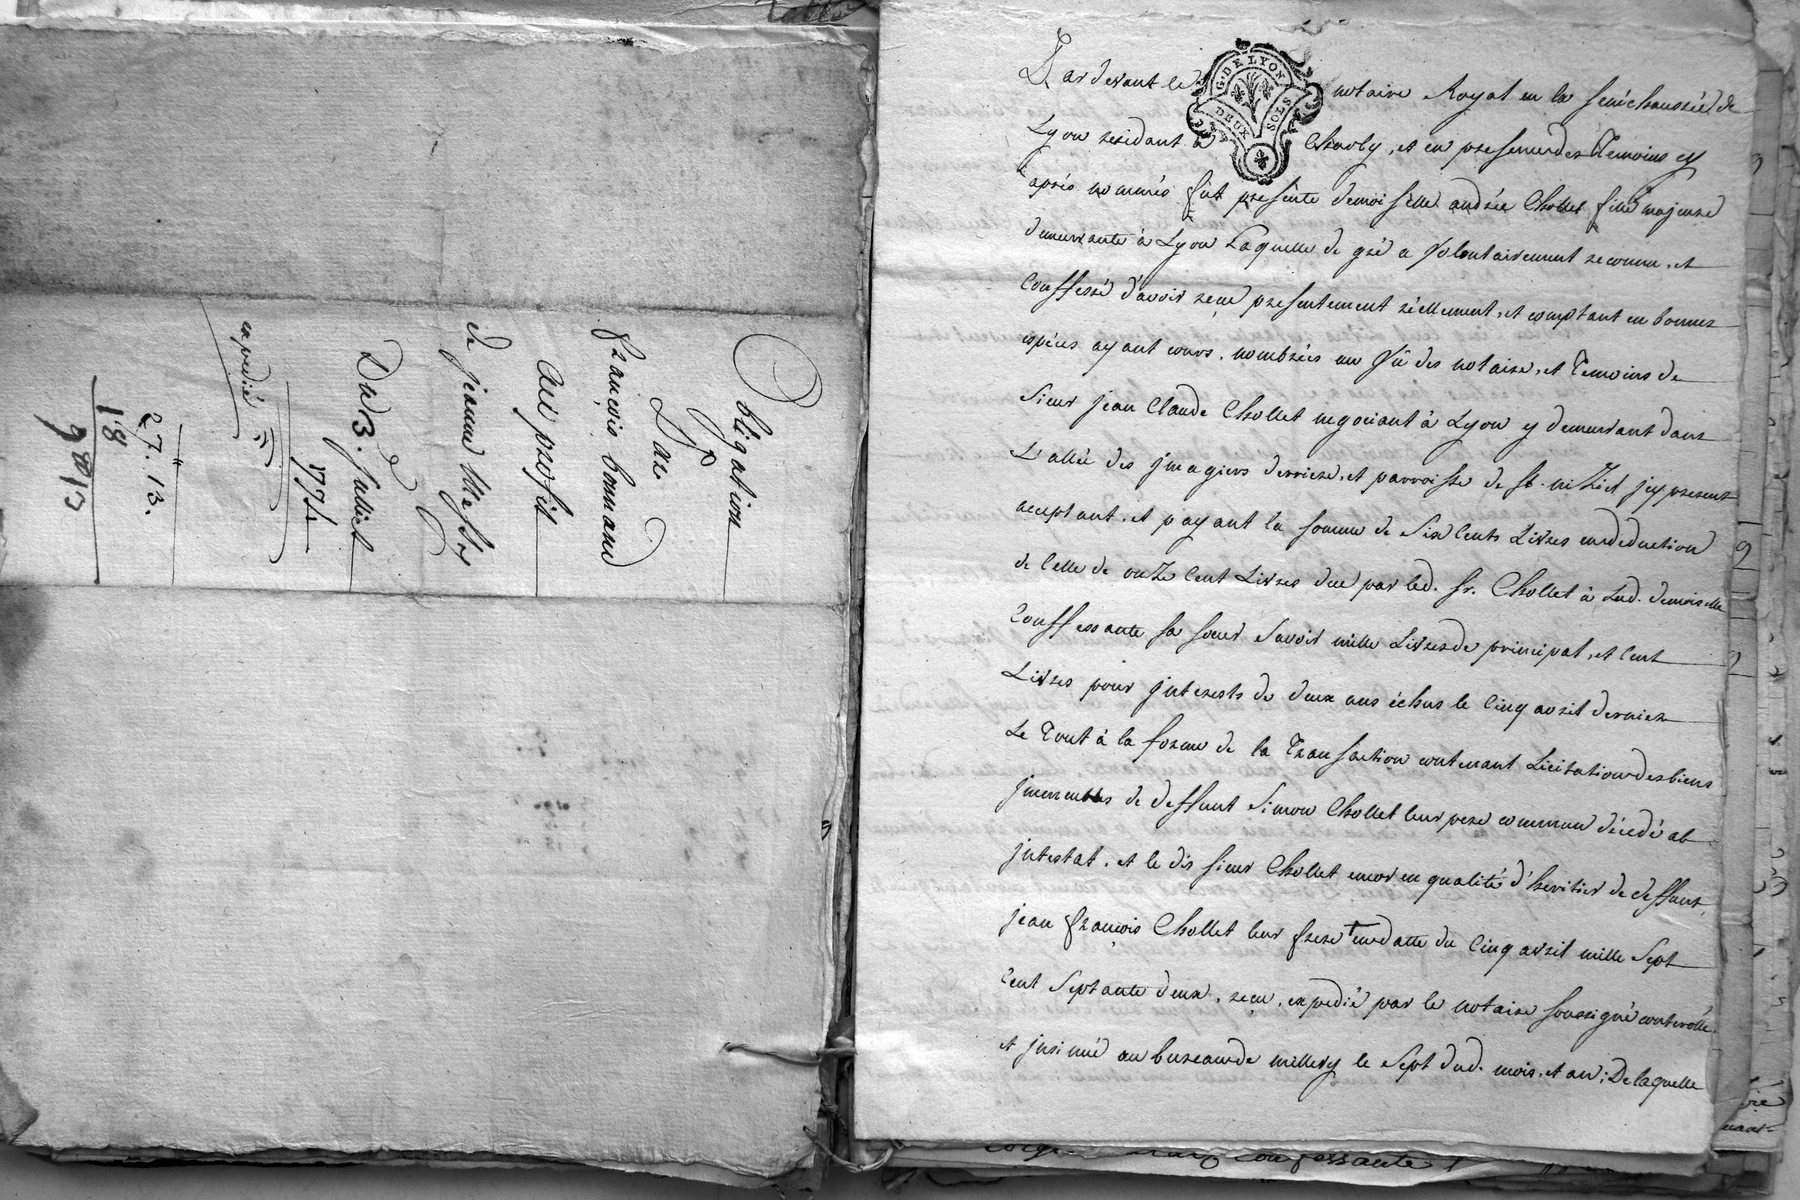 Obligation
Par
françois bonnand
au profit
de jeanne
Du 3. Juillet
1774
expedié
27. 13.
18
G. DE LYON
DEUX SOLS
Pardevant le notaire Royal en la senéchaussée de
Lyon residant à Charly, et en presence des Temoins cy
après nommés fût presente demoiselle andrée Chollet fille majeure
demeurante à Lyon Laquelle de gré a Volontairement reconnu, et
Confessé d'avoir reçu presentement réellement, et comptant en bonnes
espèces ayant cours, nombrées au Vû des notaire, et Temoins de
Sieur jean Claude Chollet negociant à Lyon y demeurant dans
L'allée des jmagiers derriere, et parroisse de St. niZier jcy present
acceptant, et payant la somme de Six Cents Livres en deduction
de Celle de onZe Cent Livres due par led. Sr. Chollet à Lad. demoiselle
Confessante sa soeur Savoir mille Livres de principal, et Cent
Livres pour jnterests de deux ans échus le Cinq avril dernier
Le Tout à la forme de la Transaction contenant Licitation des biens
jmmeubles de deffunt Simon Chollet leur pere commun décédé ab
jntestat, et le dit sieur Chollet encor en qualité d'heritier de deffunt
jean françois Chollet leur frere en datte du Cinq avril mille Sept
Cent Septante deux, reçu, expedié par le notaire soussigné controllé
et jnsinué au bureau de millery le Sept dud. mois, et an; De laquelle
confessante